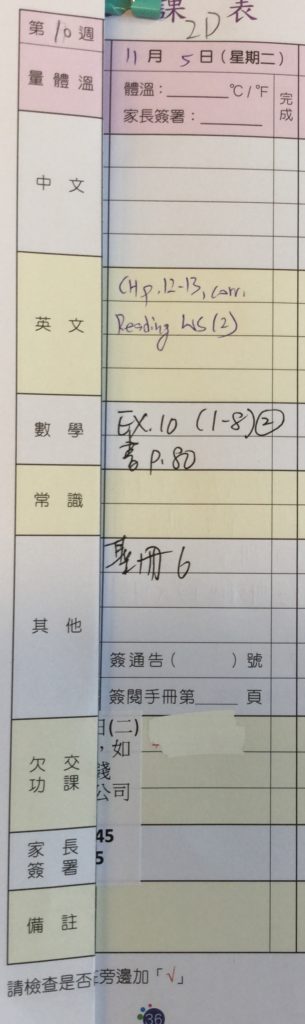 課 表
2D
第 10 週
11 月 5 日 (星期二)
量 體 溫
體溫：______°C / °F
家長簽署：______
完成
中 文
英 文
CH p.12-13, corr.
Reading WS (2)
數 學
EX.10 (1-8) ②
書 p.80
常 識
其 他
聖冊 6
簽通告 ( ) 號
簽閱手冊第____頁
欠 交
功 課
日(二)
，如
錢
公司
家 長
簽 署
45
5
備 註
請檢查是否
旁邊加「√」
36